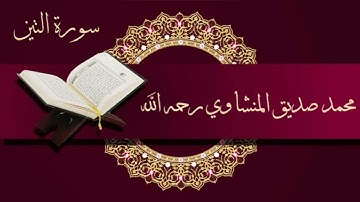 سورة التين
محمد صديق المنشاوي رحمه الله